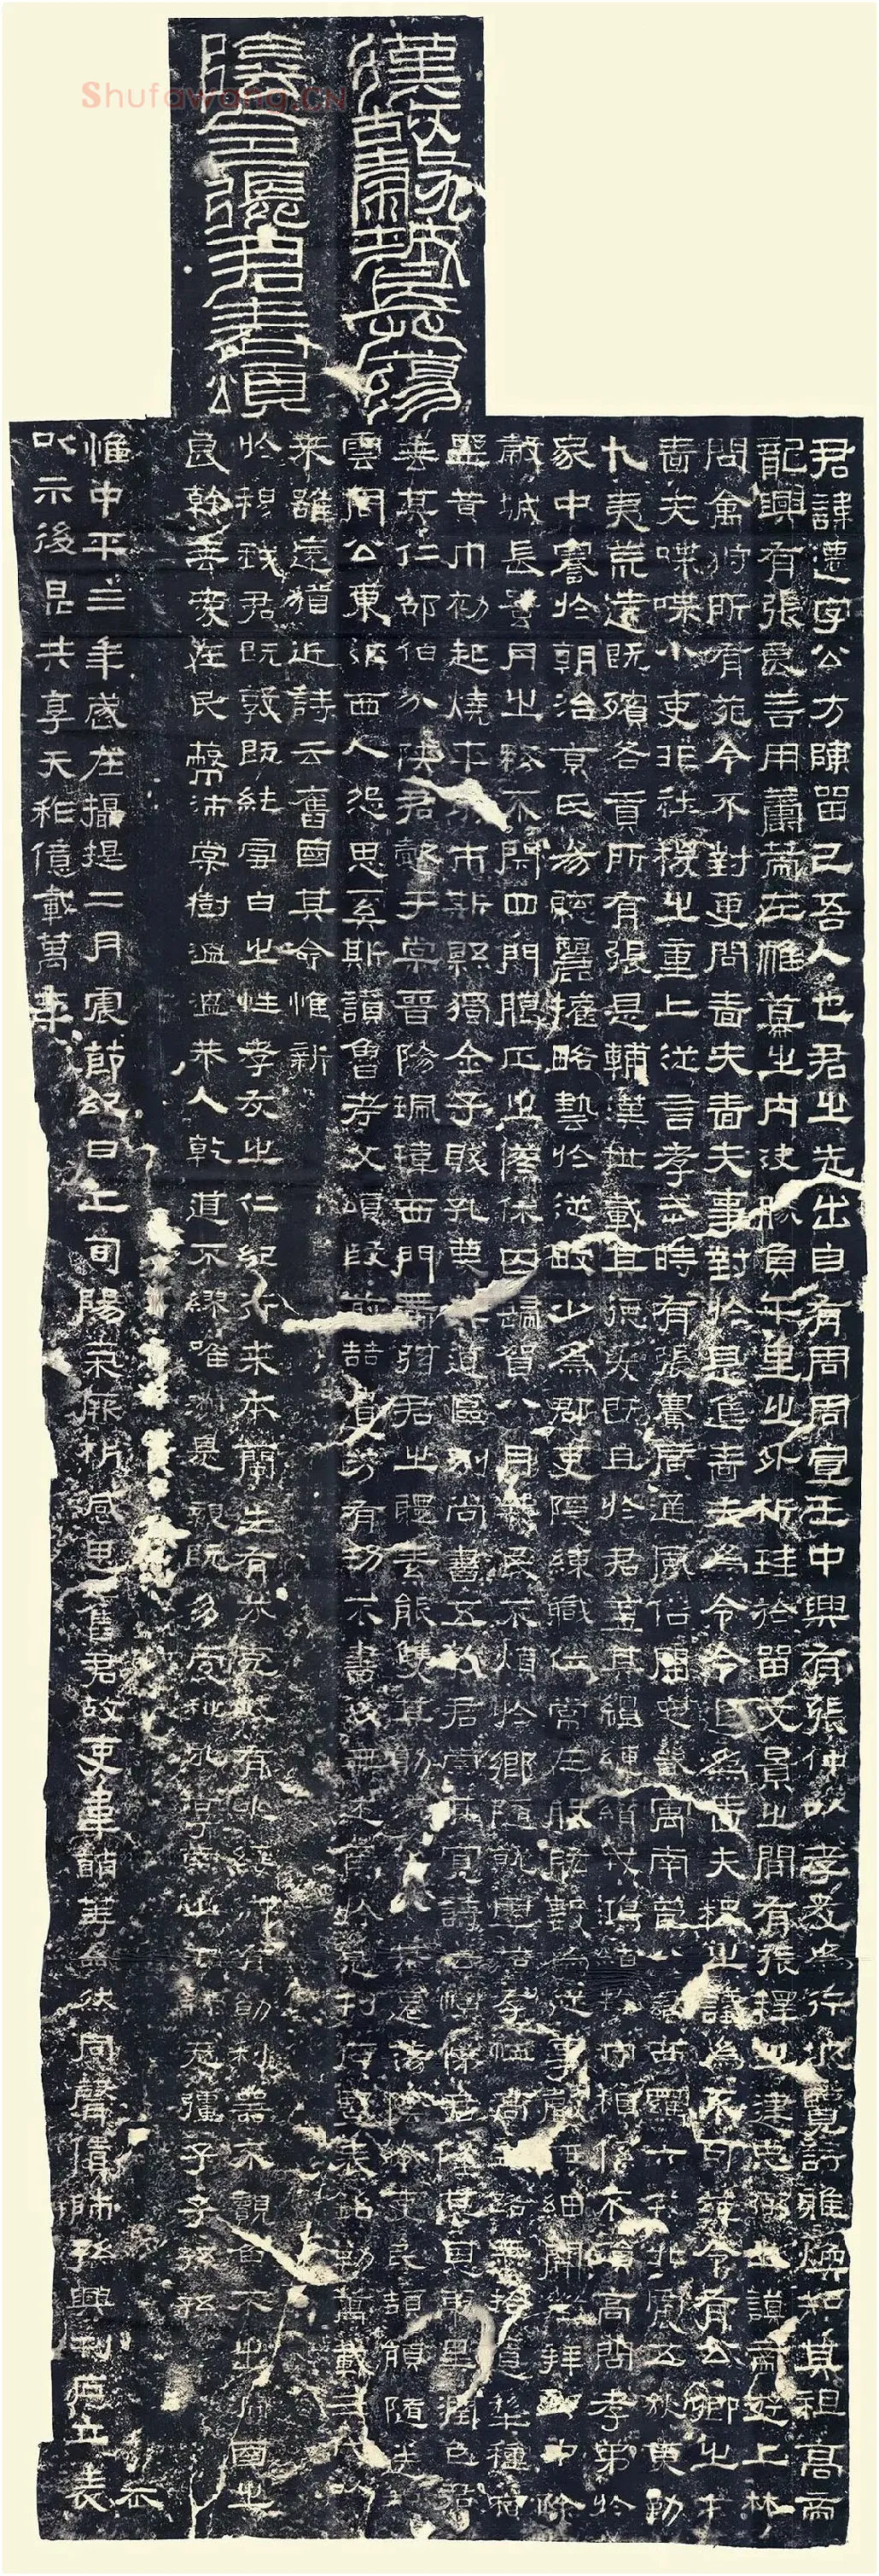 漢故穀城長蕩
陰令張君表頌
君諱遷字公方陳留己吾人也君之先出自有周周宣王中興有張仲以孝友為行披覽詩雅煥知其祖高帝
龍興有張良善用籌策在帷幕之內決勝負千里之外析珪於留文景之間有張釋之建忠弼之謨帝遊上林
問禽狩所有苑令不對更問嗇夫嗇夫事對於是進嗇夫為令令退為嗇夫釋之議為不可苑令有公卿之才
嗇夫喋喋小吏非社稷之重上從言孝武時有張騫廣通風俗開定畿寓南苞八蠻西羈六戎北震五狄東勤
九夷荒遠既殯各貢所有張是輔漢世載其德爰既且於君蓋其繵縺纘戎鴻緒牧守相係不殞高問孝弟於
家中謇於朝治京氏易聰麗權略藝於從畋少為郡吏隱練職位常在股肱數為從事聲無細聞徵拜郎中除
穀城長蠶月之務不閉四門臘正之僚休囚歸賀八月筭民不煩於鄉隨就虛落存恤高年路無拾遺犁種宿
野黃巾初起燒平城市斯縣獨全子賤孔蔑其道區別尚書五教君崇其寬詩云愷悌君隆其恩東里潤色君
垂其仁邵伯分陝君懿于棠晉陽珮瑋西門帶弦君之體素能雙其勛流化八基遷蕩陰令吏民頡頏隨送如
雲周公東征西人怨思奚斯讚魯考父頌殷前喆遺芳有功不書後無述焉於是刊石豎表銘勒萬載三代以
來雖遠猶近詩云舊國其命惟新
於穆我君既敦既純雪白之性孝友之仁紀行來本蘭生有芬克岐有兆綏御有勛利器不覿魚不出淵國之
良幹垂愛在民蔽沛棠樹溫溫恭人乾道不繆唯淑是親既多受祉永享南山干祿無疆子子孫孫
惟中平三年歲在攝提二月震節紀日上旬陽氣厥析感思舊君故吏韋萌等僉然同聲賃師孫興刊石立表
以示後昆共享天祚億載萬年
Shufawang.CN